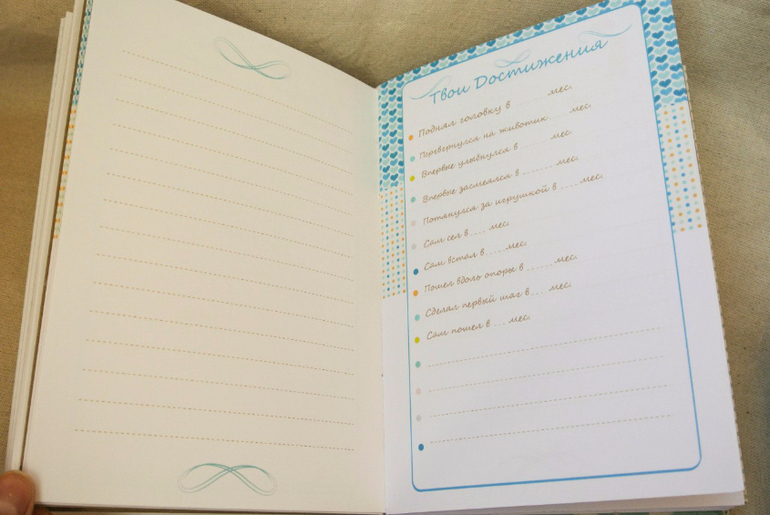 Твои Достижения
Поднял головку в ...... мес.
Перевернулся на животик ..... мес.
Впервые улыбнулся в ...... мес.
Впервые засмеялся в ....... мес.
Потянулся за игрушкой в .... мес.
Сам сел в .... мес.
Сам встал в .... мес.
Пошел вдоль опоры в ...... мес.
Сделал первый шаг в .... мес.
Сам пошел в ... мес.